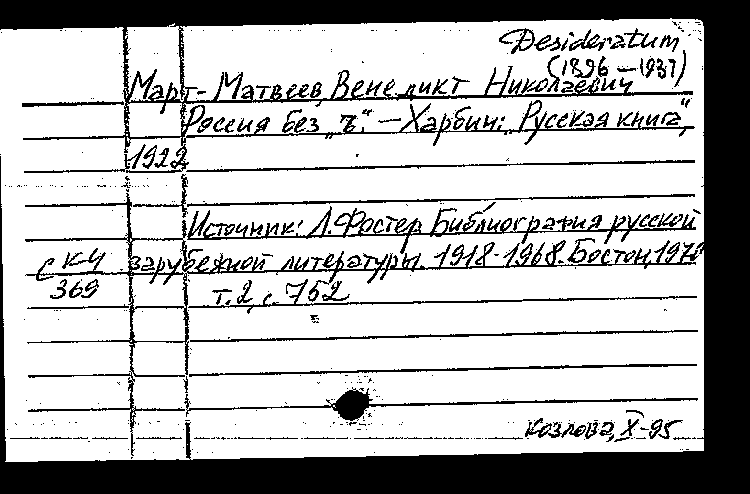 Desideratum
(1896-1937)
Март-Матвеев, Венедикт Николаевич
Россия без „ъ". - Харбин: „Русская книга",
1922
Источник: Л. Фостер Библиография русской
зарубежной литературы. 1918-1968. Бостон, 1970
т. 2, с. 752
с КЧ
369
Козлова, X-95